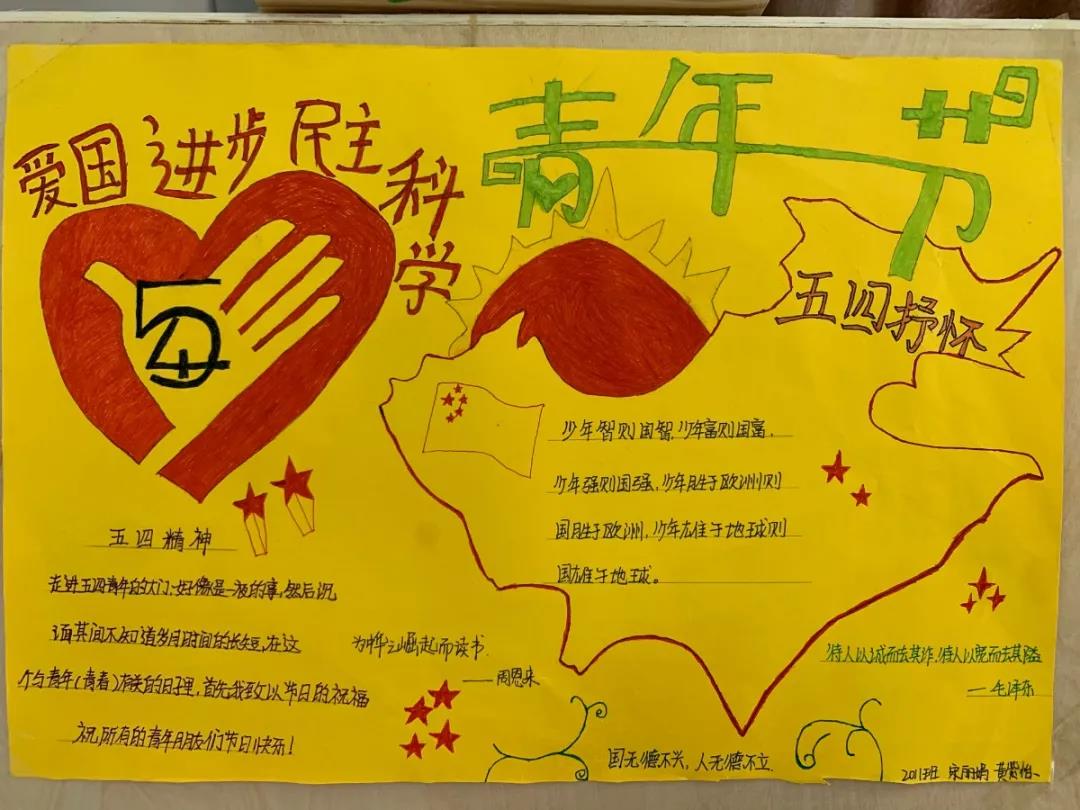 爱国 进步 民主 科学
青年节
5.4
五四抒怀
少年智则国智,少年富则国富,
少年强则国强,少年胜于欧洲则
国胜于欧洲,少年雄于地球则
国雄于地球。
五四精神
走进五四青年的大门,好像是一夜的事,然后沉
其间不知道岁月时间的长短,在这
个与青年(青春)有关的日子里,首先我致以节日的祝福
祝所有的青年朋友们节日快乐!
为中华之崛起而读书.
——周恩来
待人以诚而去其诈,待人以宽而去其隘
—毛泽东
国无德不兴,人无德不立.
2011班